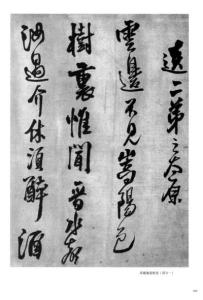 送二弟之太原
雲邊不見嵩陽色
樹裏惟聞晉水聲
汝過介休須醉酒